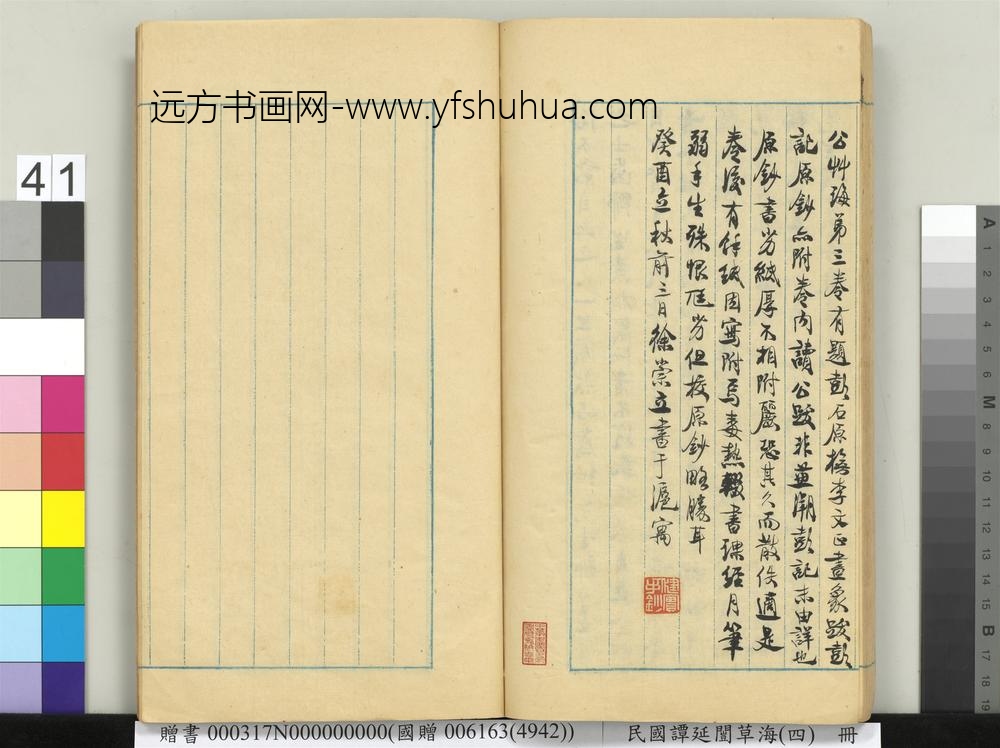 远方书画网-www.yfshuhua.com
公艸海第三卷有題彭石原橅李文正畫象跋彭
記原鈔亦附卷内讀公跋非並溯彭記末由詳也
原鈔書劣紙厚不相附麗恐其久而散佚適是
卷後有餘紙因寫附焉毒熱輟書課經月筆
弱手生殊恨尫劣但校原鈔略勝耳
癸酉立秋前三日徐崇立書于滬寓
41
A 1 2 3 4 5 6 M 8 9 10 11 12 13 14 15 B 17 18 19
贈書 000317N000000000(國贈 006163(4942))
民國譚延闓草海(四) 冊